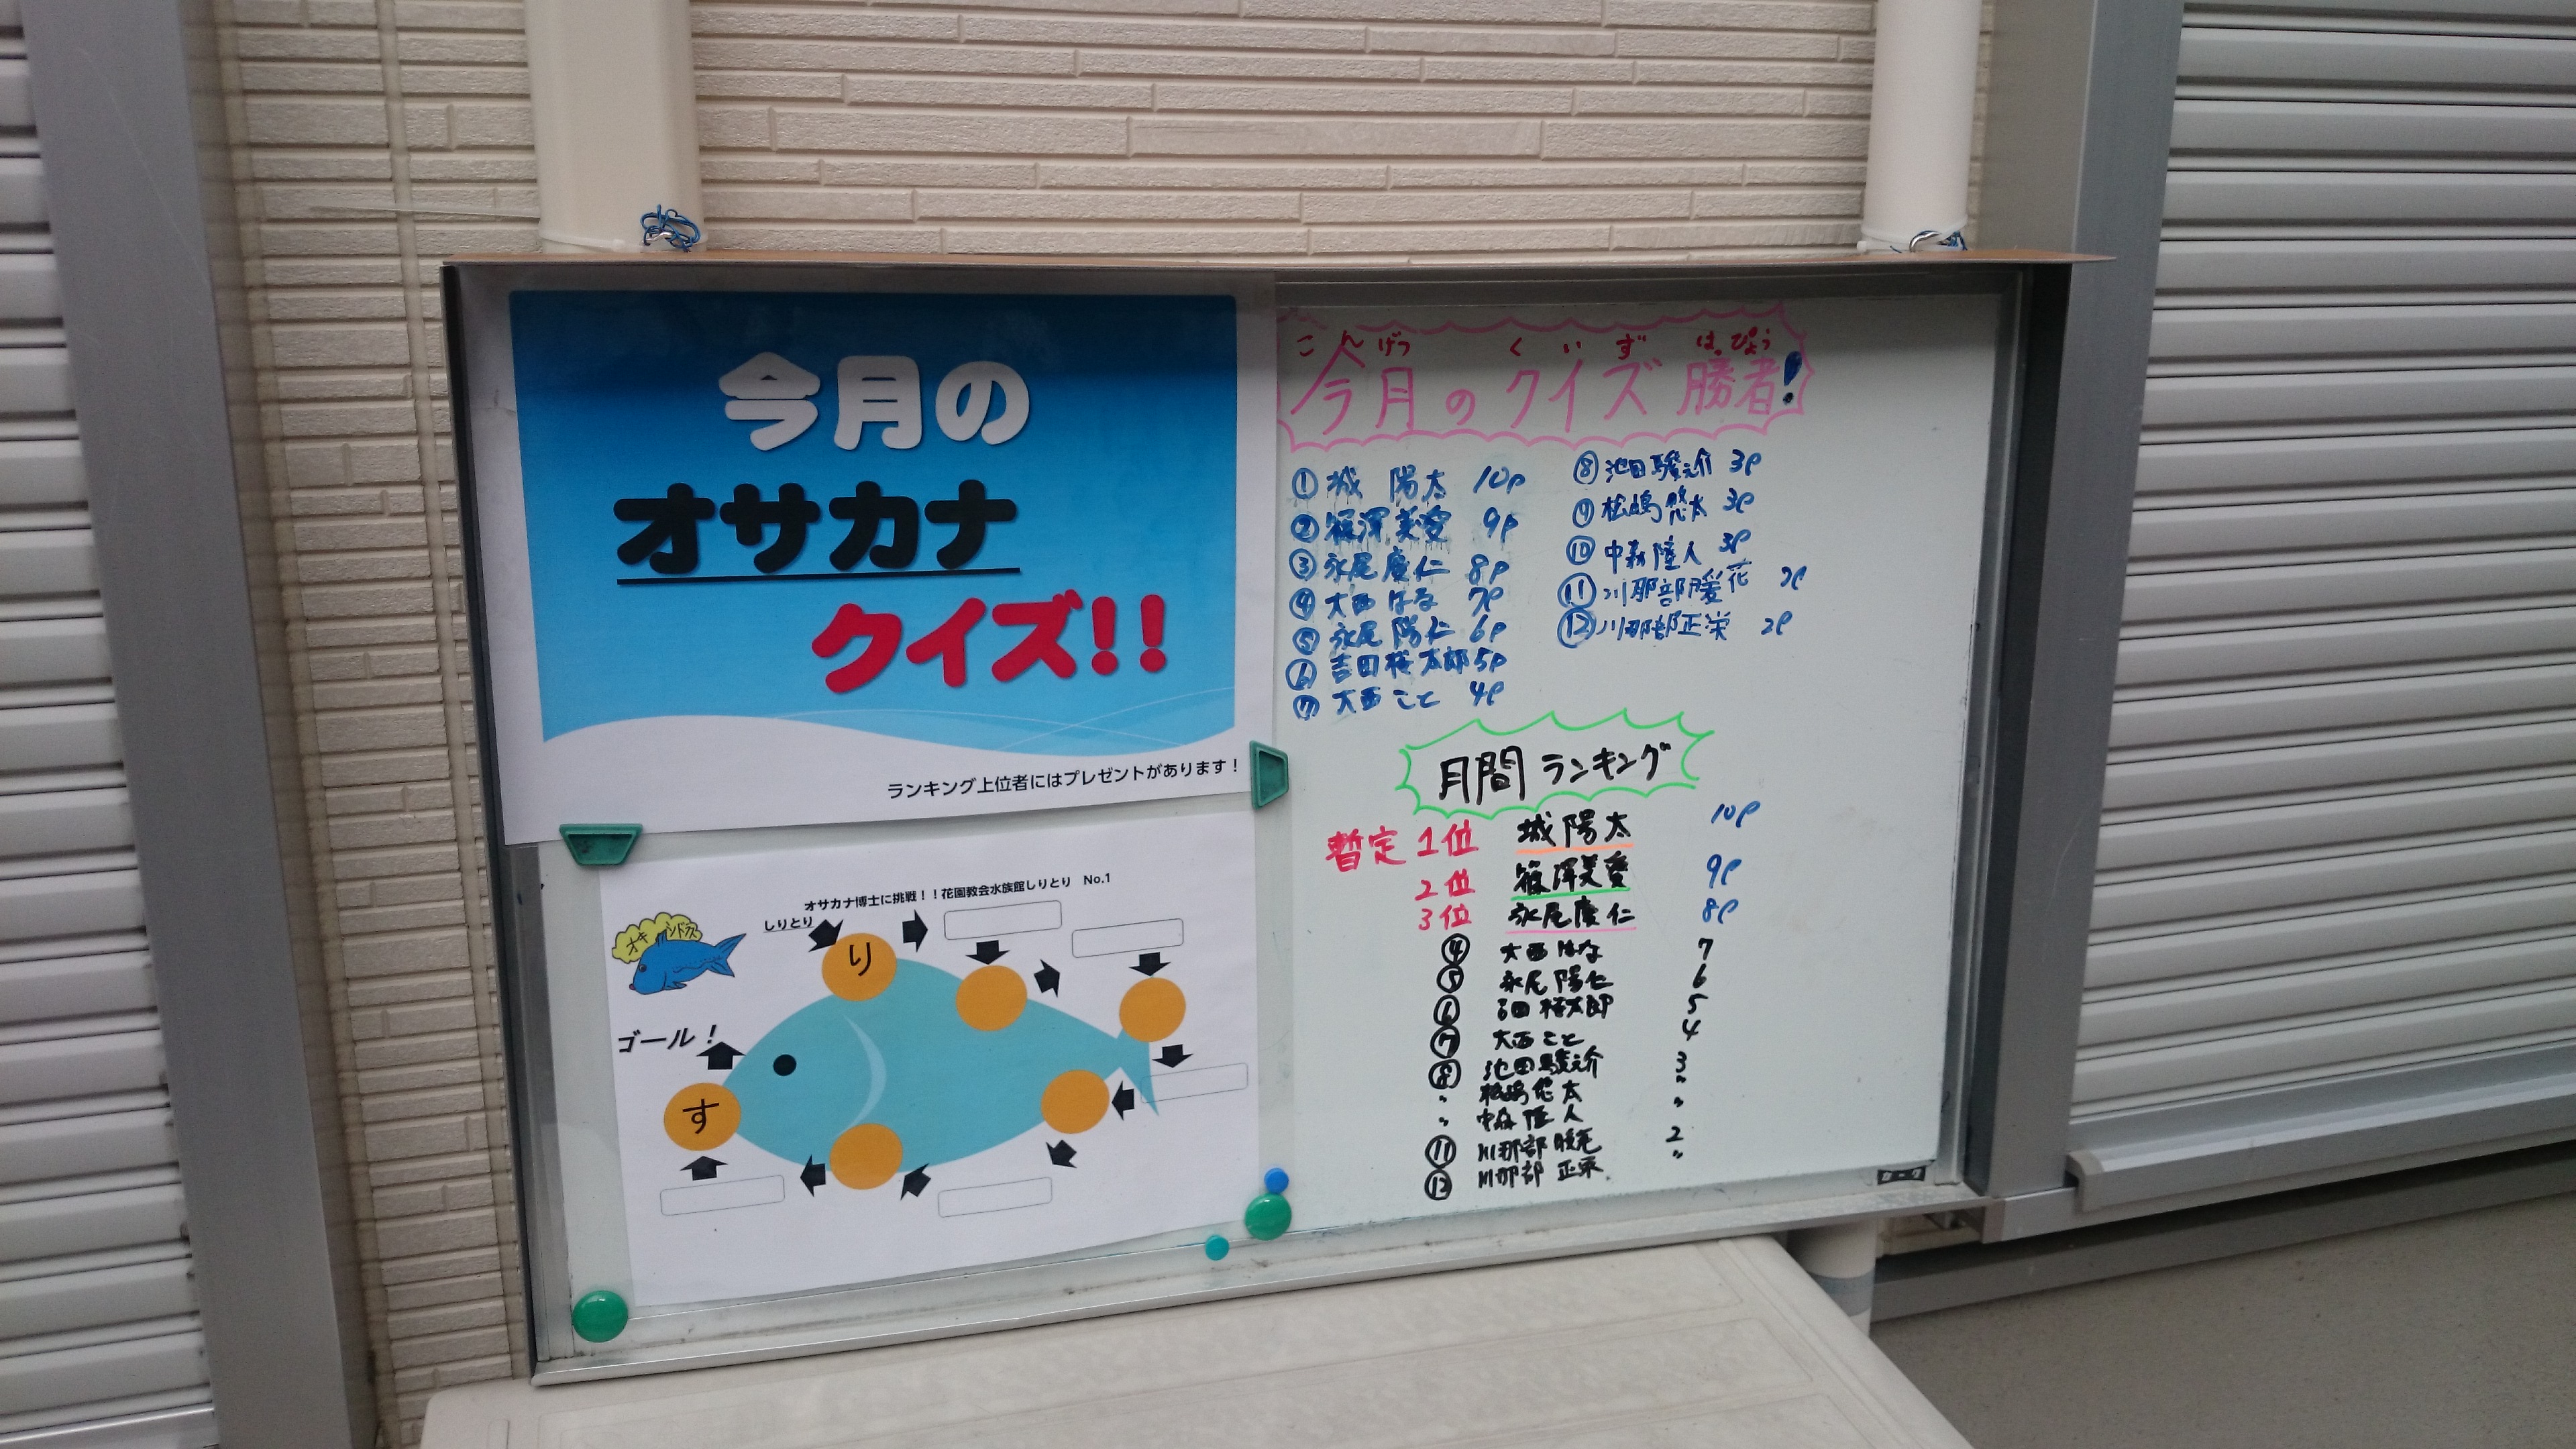 今月の
オサカナ
クイズ!!
ランキング上位者にはプレゼントがあります！
オサカナ博士に挑戦！！花園教会水族館しりとり No.1
しりとり
り
ゴール！
す
こんげつ くいず はっぴょう
今月のクイズ勝者!
① 城 陽太 10P
② 篠澤美愛 9P
③ 永尾慶仁 8P
④ 大西はな 7P
⑤ 永尾陽仁 6P
⑥ 吉田桜太郎 5P
⑦ 大西こと 4P
⑧ 池田駿之介 3P
⑨ 松嶋悠太 3P
⑩ 中森陸人 3P
⑪ 川那部暖花 2P
⑫ 川那部正栄 2P
月間ランキング
暫定 1位 城陽太 10P
2位 篠澤美愛 9P
3位 永尾慶仁 8P
④ 大西はな 7
⑤ 永尾陽仁 6
⑥ 吉田桜太郎 5
⑦ 大西こと 4
⑧ 池田駿之介 3
〃 松嶋悠太 〃
〃 中森陸人 〃
⑪ 川那部暖花 2
⑫ 川那部正栄 〃